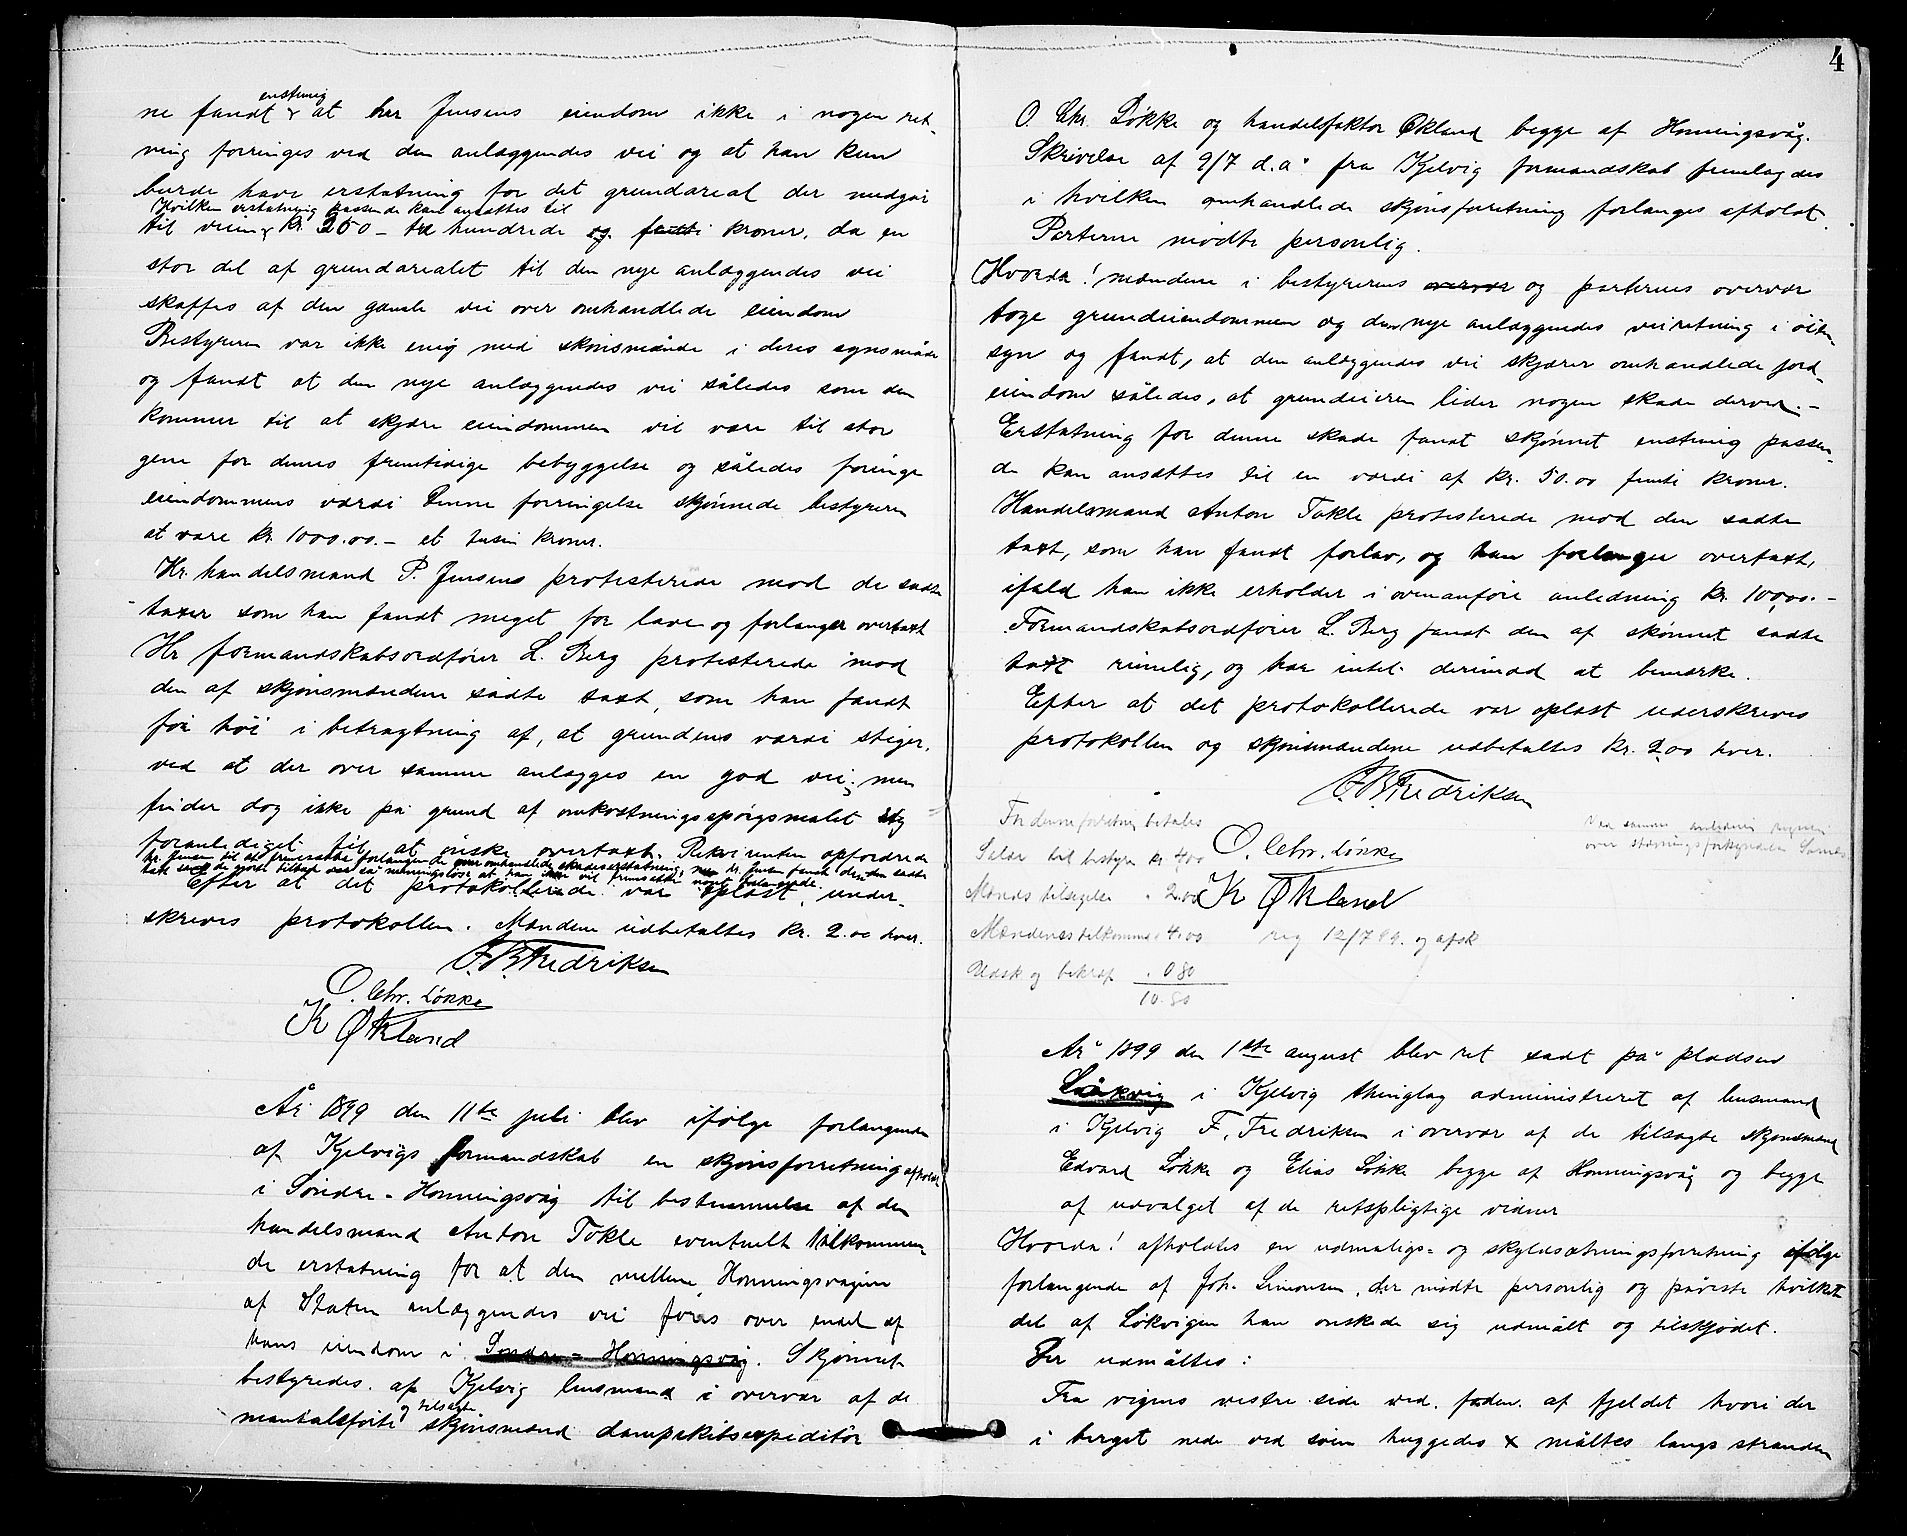 ne fandt enstemig at her Jensens eiendom ikke i nogen ret-
ning forringes ved den anlæggendes vei og at han kun
burde have erstatning for det grundareal der medgår
Hvilken erstatning passende kan ansættes til
til veien kr 250 – to hundrede og femti kroner, da en
stor del af grundarealet til den nye anlæggendes vei
skaffes af den gamle vei over omhandlede eiendom
Bestyreren var ikke enig med skjønsmænde i deres synsmåde
og fandt at den nye anlæggendes vei således som den
kommer til at skjære eiendommen vil være til stor
gene for dennes fremtidige bebyggelse og således foringe
eiendommens værdi Denne forringelse skjønnede bestyreren
at være kr. 1000.00.– et tusin kroner.
Hr. handelsmand P. Jensens protesterede mod de sadte
taxer som han fandt meget for lave og forlanger overtaxt
Hr formandskabsordfører L. Berg protesterede mod
den af skjønsmændene sadte taxt, som han fandt
for høi i betragtning af, at grundens værdi stiger,
ved at der over samme anlægges en god vei; men
finder dog ikke på grund af omkostningsspørgsmalet sig
foranlediget til at ønske overtaxt. Rekvirenten opfordrede
hr. Jensen til at fremsætte forlangende over omhandlede skadeserstatning, hr. Jensen fandt den sadte
taxt så meningsløse at han ikke vil fremsætte noget forlangende.
Efter at det protokollerede var oplæst, under-
skreves protokollen. Mændene udbetaltes kr. 2.00 hver.
F. B. Fredriksen
O. Chr. Løkke
K Økland
År 1899 den 11te juli blev ifølge forlangende
af Kjelvigs formandskab en skjønsforretning afholdt
i Søndre-Honningsvåg til bestemmelse af den
handelsmand Anton Tokle eventuelt tilkommen-
de erstatning for at den mellem Honningsvagene
af Staten anlæggendes vei føres over endel af
hans eiendom i Søndre-Honningsvåg. Skjønnet
bestyredes af Kjelvig lensmand i overvær af de
og tilsagte
mantalsførte skjønsmænd dampskibsexpeditør
4
O. Chr. Løkke og handelfaktor Økland begge af Honningsvåg.
Skrivelse af 9/7 d.å fra Kjelvig formandskab fremlagdes
i hvilken omhandlede skjønsforretning forlanges afholdt.
Parterne mødte personlig.
Hvorda! mændene i bestyrerens overvær og parternes overvær
toge grundeiendommen og den nye anlæggendes veiretning i øien-
syn og fandt, at den anlæggendes vei skjærer omhandlede jord-
eiendom således, at grundeieren lider nogen skade derved.–
Erstatning for denne skade fandt skjønnet enstemig passen-
de kan ansættes til en værdi af kr. 50.00 femti kroner.
Handelsmand Anton Tokle protesterede mod den sadte
taxt, som han fandt forlav, og han forlanger overtaxt,
ifald han ikke erholder i ovenanføre anledning kr. 100,00.–
Formandskabsordfører L. Berg fandt den af skønnet sadte
taxt rimelig, og har intet derimod at bemærke.
Efter at det protokollerede var oplæst underskreves
protokollen og skjønsmændene udbetaltes kr. 2.00 hver.
F. B. Fredriksen
For denne forretning betales
Salær til bestyre kr 4,00
O. Chr. Løkke
Mænds tilsigelse " 2.00
K Økland
Mændenes tilkomme " 4.00 reg 12/7 99. og afsk
Udsk og bekræf " 0.80
10.80
År 1899 den 1ste august blev ret sadt på pladsen
Løkvig i Kjelvig thinglag administreret af lensmand
i Kjelvig F. Fredriksen i overvær af de tilsagte skjønsmænd
Edvard Løkke og Elias Løkke begge af Honningsvåg og begge
af udvalget af de retspligtige vidner
Hvorda! afholdtes en udmåligs- og skyldsætningsforretning ifølge
forlangende af Joh. Simonsen, der mødte personlig og påviste hvilket
del af Løkvigen han ønskede sig udmålt og tilskjødet.
Der udmåltes:
Fra vigens vestre side ved foden af fjeldet hvori der
i berget nede ved søen huggedes x måltes langs stranden